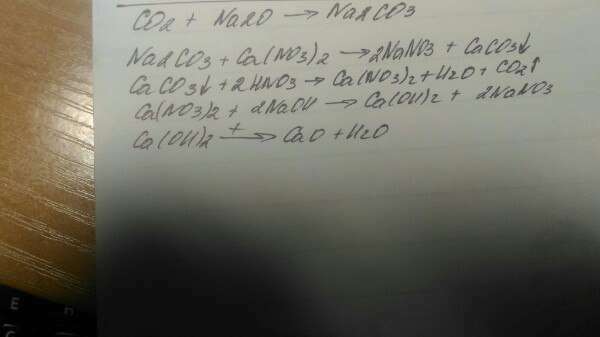 CO2 + Na2O → Na2CO3
Na2CO3 + Ca(NO3)2 → 2NaNO3 + CaCO3↓
CaCO3↓ + 2HNO3 → Ca(NO3)2 + H2O + CO2↑
Ca(NO3)2 + 2NaOH → Ca(OH)2 + 2NaNO3
Ca(OH)2 t→ CaO + H2O
E